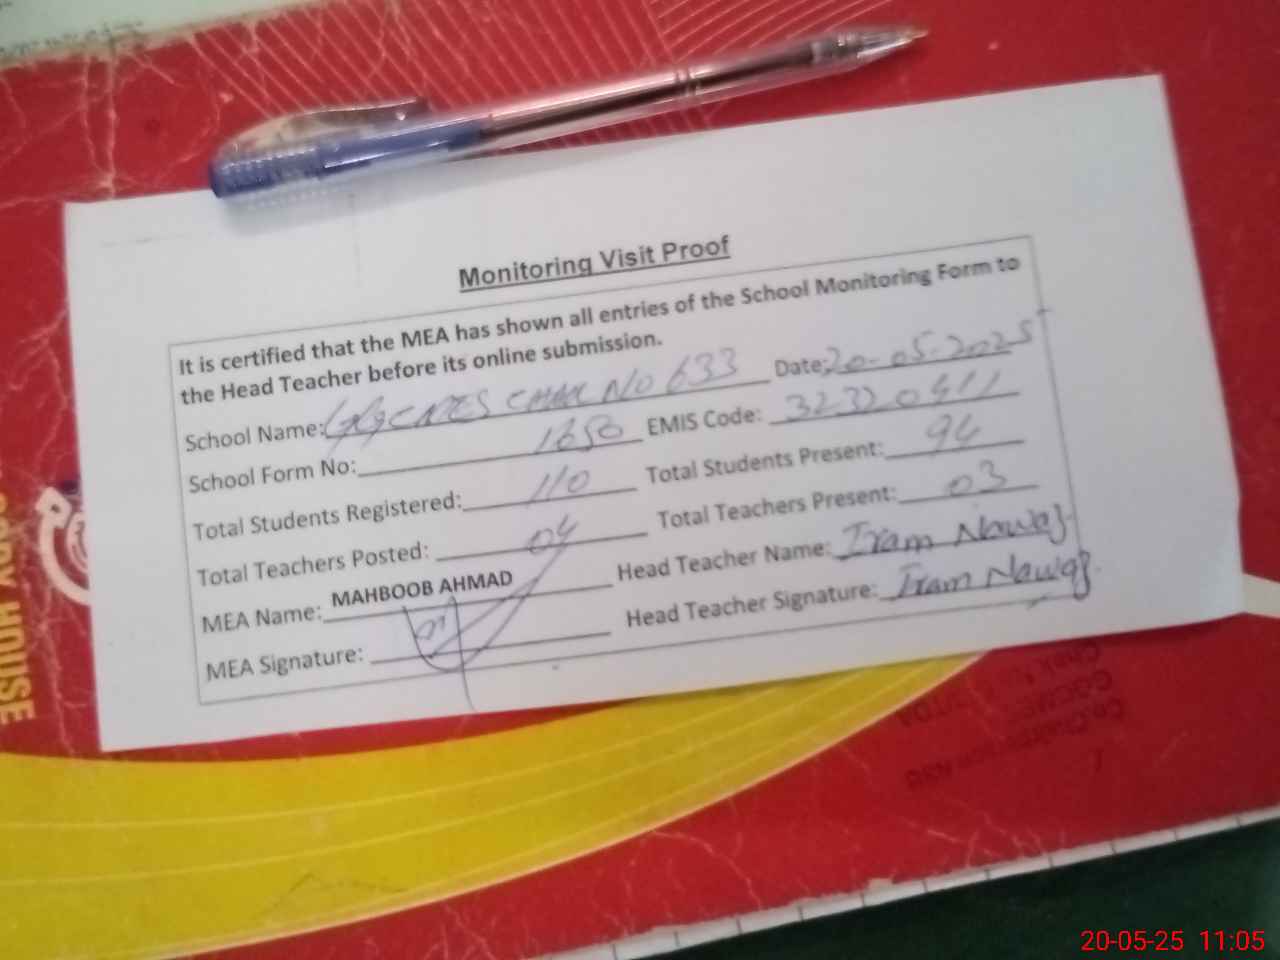 Monitoring Visit Proof
It is certified that the MEA has shown all entries of the School Monitoring Form to
the Head Teacher before its online submission.
School Name: CHAK NO 633 Date: 20-05-2025
School Form No: 1650 EMIS Code: 32320411
Total Students Registered: 110 Total Students Present: 94
Total Teachers Posted: 04 Total Teachers Present: 03
MEA Name: MAHBOOB AHMAD Head Teacher Name: Iram Nawaz
MEA Signature: Head Teacher Signature: Iram Nawaz
HOUSE
20-05-25 11:05